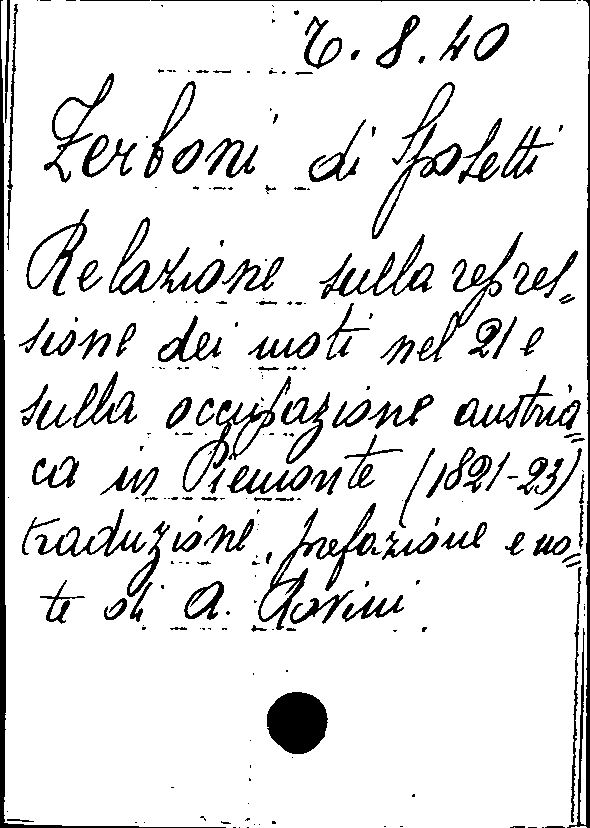 7.8.40
Zerboni di Sposetti
Relazione sulla repres=
sione dei moti nel 21 e
sulla occupazione austria=
ca in Piemonte (1821-23)
traduzione, prefazione e no=
te di A. Rovini.